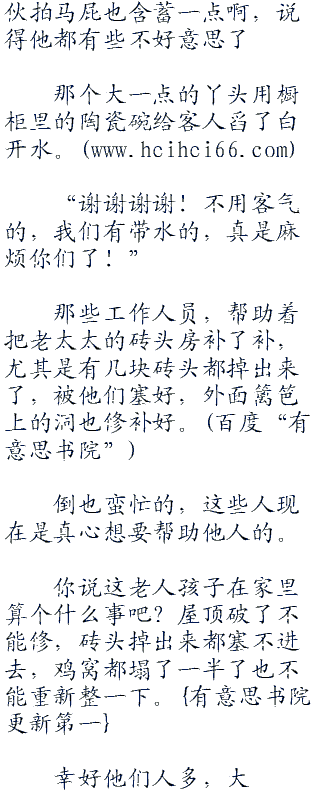 伙拍马屁也含蓄一点啊，说
得他都有些不好意思了
那个大一点的丫头用橱
柜里的陶瓷碗给客人舀了白
开水。(www.hcihci66.com)
“谢谢谢谢！不用客气
的，我们有带水的，真是麻
烦你们了！”
那些工作人员，帮助着
把老太太的砖头房补了补，
尤其是有几块砖头都掉出来
了，被他们塞好，外面篱笆
上的洞也修补好。(百度“有
意思书院”)
倒也蛮忙的，这些人现
在是真心想要帮助他人的。
你说这老人孩子在家里
算个什么事吧？屋顶破了不
能修，砖头掉出来都塞不进
去，鸡窝都塌了一半了也不
能重新整一下。{有意思书院
更新第一}
幸好他们人多，大